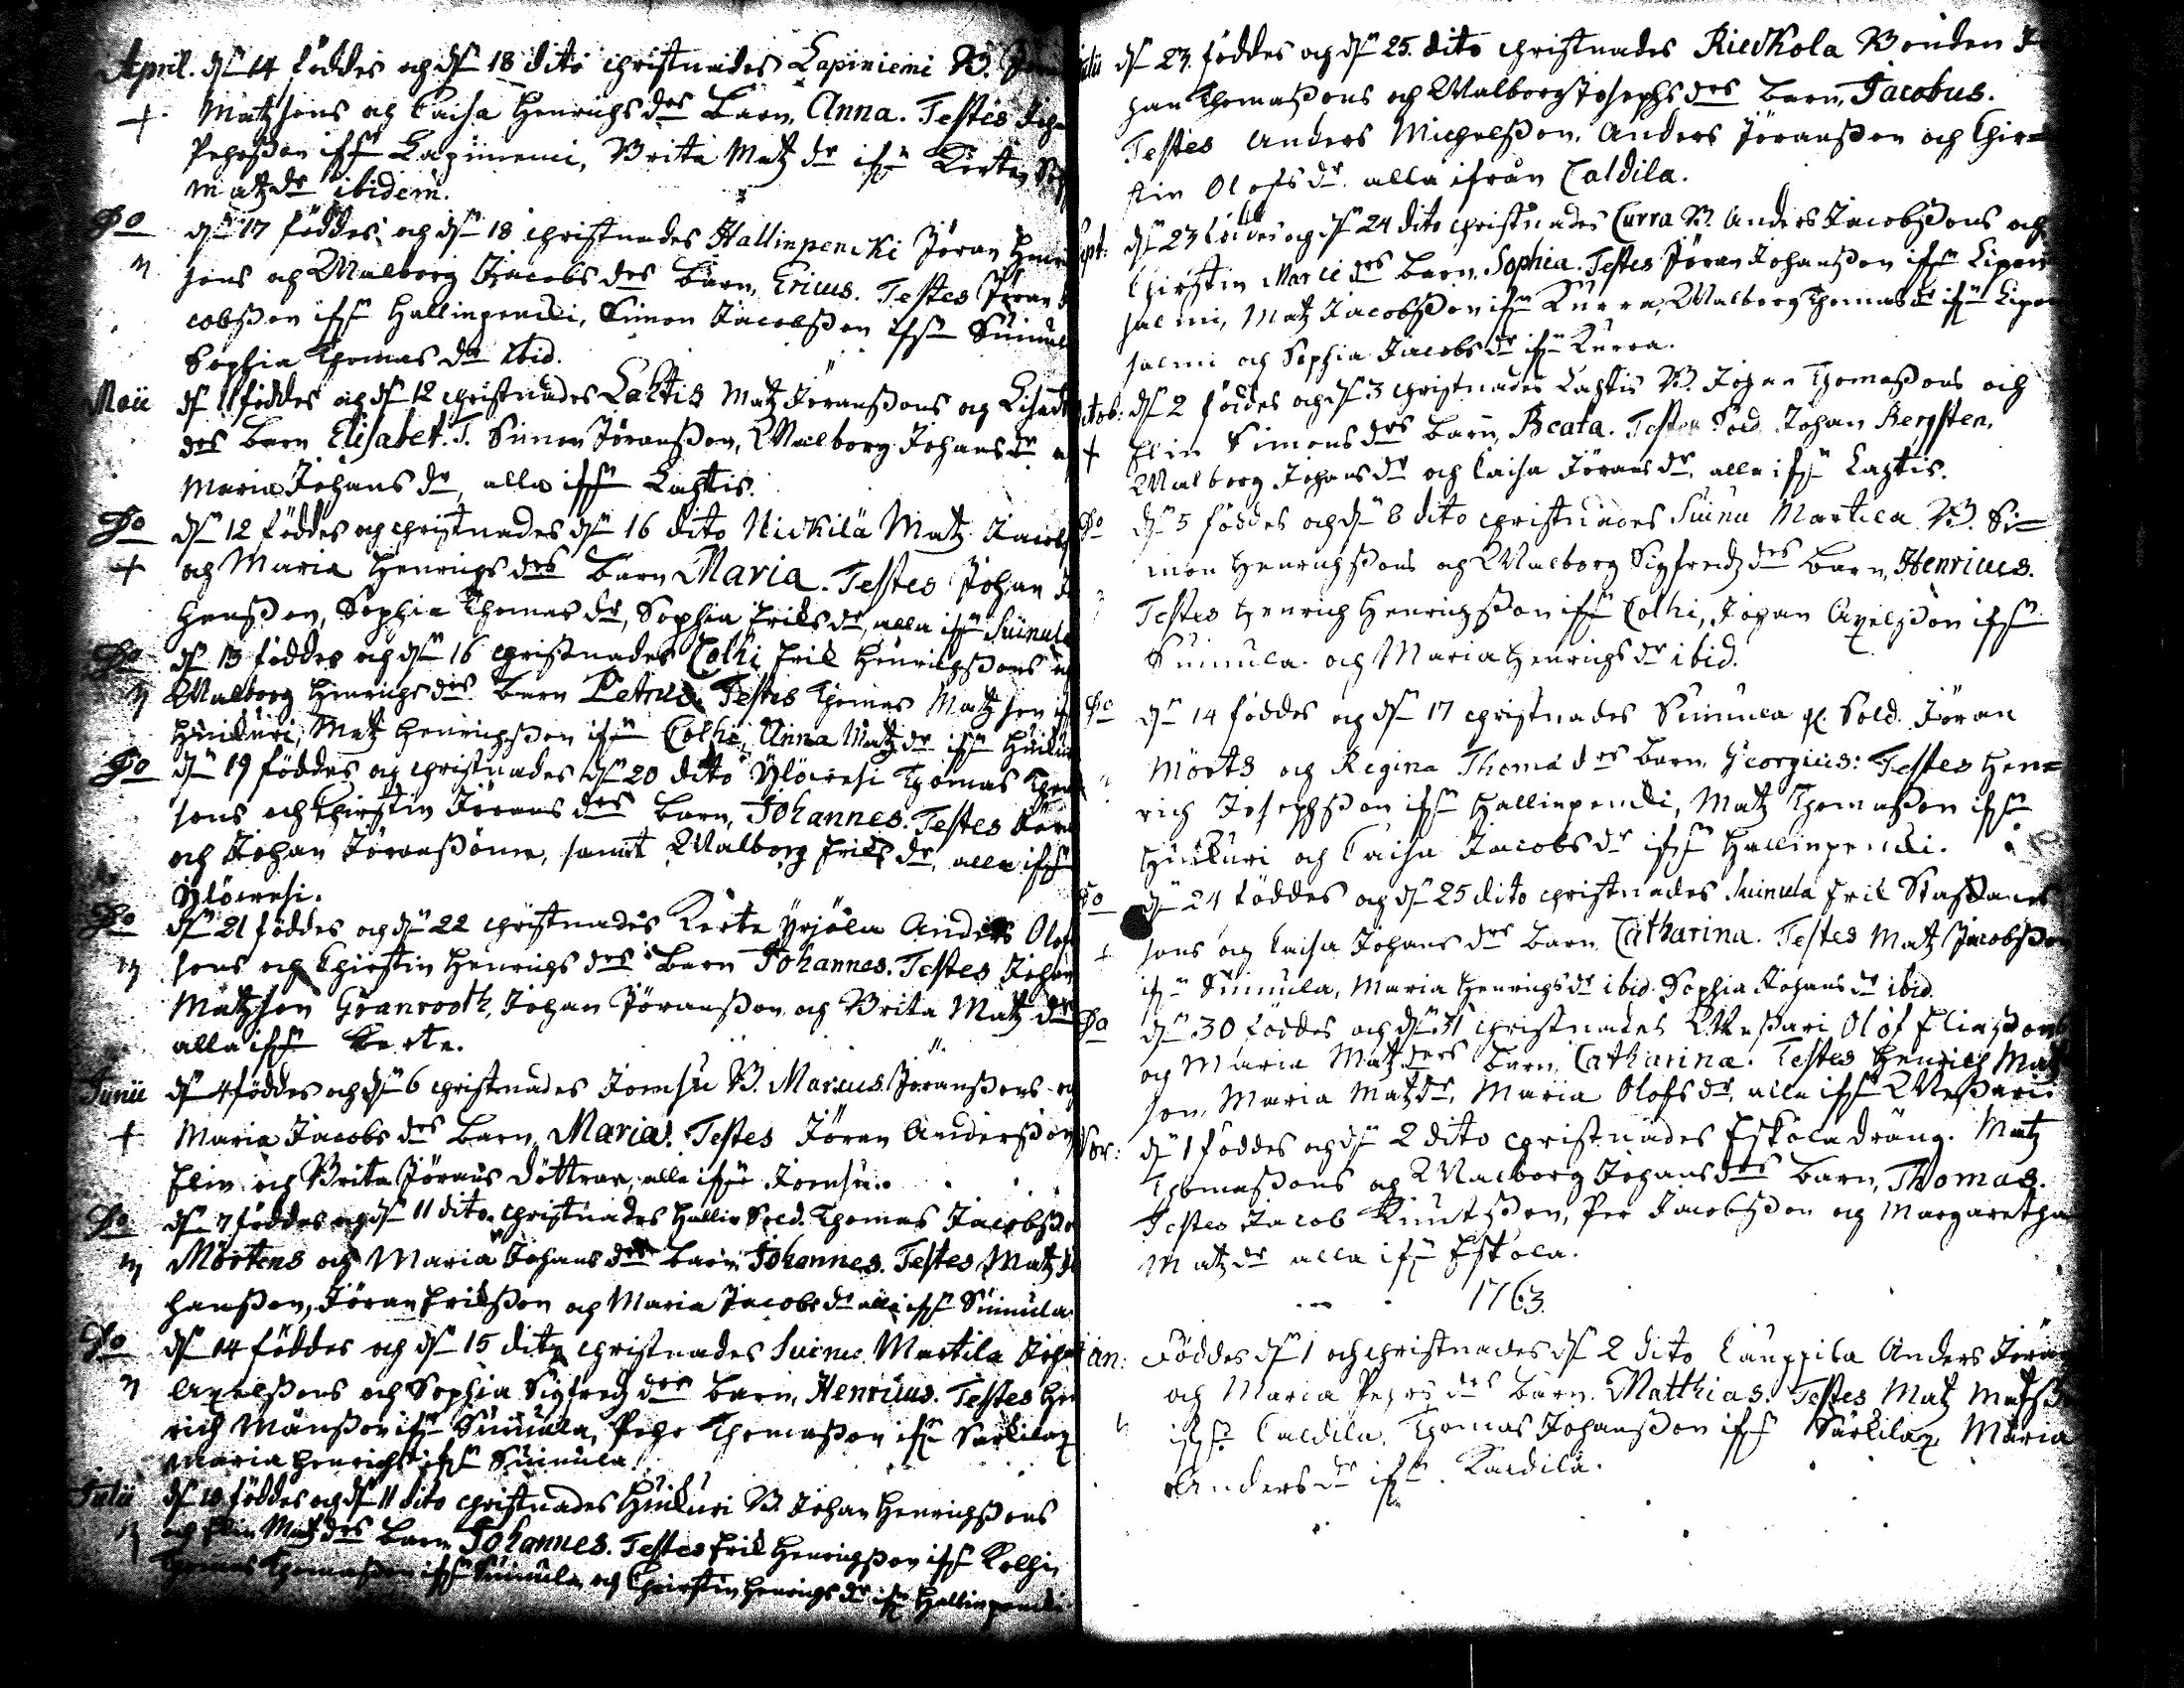 April. d: 14 föddes och d: 18 dito christnades Lapiniemi B.
+ Matzsons och Caisa Henrichs drs Barn, Anna. Testes
Pehrsson ifr: Lapiniemi, Brita Matz dr ifr: Kerte,
Matz dr ibidem.
Do d: 17 föddes och d: 18 christnades Hallinpencki Jöran
sons och Walborg Jacobs drs Barn, Ericus. Testes Jöran
cobsson ifr: Hallinpencki, Simon Jacobsson ifr:
Sophia Thomas dr ibid.
Maii d: 11 föddes och d: 12 christnades Lahtis Matz Jöranssons och
drs Barn Elisabet. T. Simon Jöransson, Walborg Johans dr
Maria Johans dr, alla ifr: Lahtis.
Do d: 12 föddes och christnades d: 16 dito Nickilä Matz
+ och Maria Henrichs drs Barn Maria. Testes Johan
hansson, Sophia Thomas dr, Sophia Eriks dr, alla ifr:
Do d: 13 föddes och d: 16 christnades Colhi Erik Henrichssons
Walborg Henrichs drs Barn Petrus. Testes Thomas Matzson
Huikuri, Matz Henrichsson ifr: Colhi, Anna Matz dr ifr:
Do d: 19 föddes och christnades d: 20 dito Ylöivesi Thomas
sons och Chirstin Jörans drs Barn, Johannes. Testes
och Johan Jöranssöner, samt Walborg Eriks dr, alla ifr:
Ylöivesi.
Do d: 21 föddes och d: 22 christnades Kerte Yrjöla Anders
sons och Chirstin Henrichs drs Barn Johannes. Testes Johan
Matzson Granrooth, Johan Jöransson och Brita Matz dr
alla ifr: Kerte.
Junii d: 4 föddes och d: 6 christnades Joensu B. Marcus Jöranssons
+ Maria Jacobs drs Barn, Maria. Testes Jöran Andersson
Elin och Brita Jörans döttrar, alla ifr: Joensu.
Do d: 7 föddes och d: 11 dito christnades Sold. Thomas
Mörtens och Maria Johans drs Barn Johannes. Testes Matz
hansson, Jöran Eriksson och Maria Jacobs dr alla ifr: Suinula
Do d: 14 föddes och d: 15 dito christnades Suinu Martila
Axelssons och Sophia Sigfredz drs Barn, Henricus. Testes
rich Månsson ifr: Suinula, Pehr Thomasson ifr: Särkilax
Maria Henrichs ifr: Suinula.
Julii d: 10 föddes och d: 11 dito christnades Huikuri B. Johan Henrichssons
och Elin Matz drs Barn Johannes. Testes Erik Henrichsson ifr: Kolhi
Thomas Thomasson ifr: Suinula och Chirstin Henrichs dr ifr: Hallinpencki
d: 23. föddes och d: 25. dito christnades Rieckola Bonden
han Thomassons och Walborg Josephs drs Barn, Jacobus.
Testes Anders Michelsson, Anders Jöransson och Chir=
stin Olofs dr alla ifrån Caldila.
d: 23 föddes och d: 24 dito christnades Curra B. Anders Jacobssons och
Chirstin Marci drs Barn, Sophia. Testes Jöran Johansson ifr:
salmi, Matz Jacobsson ifr: Kurra, Walborg Thomas dr ifr:
salmi och Sophia Jacobs dr ifr: Kurra.
d: 2 föddes och d: 3 christnades Lahtis B. Johan Thomassons och
+ Elin Simons drs Barn, Beata. Testes Sold. Johan Bergsten,
Walborg Johans dr och Caisa Jörans dr alla ifr: Lahtis.
Do d: 5 föddes och d: 8 dito christnades Suinu Martila B. Si=
mon Henrichssons och Walborg Sigfredz drs Barn, Henricus.
Testes Henrich Henrichsson ifr: Colhi, Johan Axelsson ifr:
Suinula och Maria Henrichs dr ibid.
Do d: 14 föddes och d: 17 christnades Suinula Sold. Jöran
Mörts och Regina Thomæ drs Barn, Georgius: Testes Hen=
rich Josephsson ifr: Hallinpencki, Matz Thomasson ifr:
Huikuri och Caisa Jacobs dr ifr: Hallinpencki.
Do d: 24 föddes och d: 25 dito christnades Suinula Erik Staffans
+ sons och Caisa Johans drs Barn Catharina. Testes Matz Jacobsson
ifr: Suinula, Maria Henrichs dr ibid. Sophia Johans dr ibid.
Do d: 30 föddes och d: 31 christnades Wessari Olof Eliassons
och Maria Matz drs Barn, Catharina. Testes Henrich
son, Maria Matz dr, Maria Olofs dr, alla ifr: Wessari.
d: 1 föddes och d: 2 dito christnades Eskola dräng. Matz
Thomassons och Walborg Johans drs Barn, Thomas.
Testes Jacob Knutsson, Per Jacobsson och Margaretha
Matz dr alla ifr: Eskola.
1763.
Föddes d: 1 och christnades d: 2 dito Cauppila Anders
och Maria Pehrs drs Barn. Matthias. Testes Matz
ifr: Caldila, Thomas Johansson ifr: Särkilax, Maria
Anders dr ifr: Kaldila.